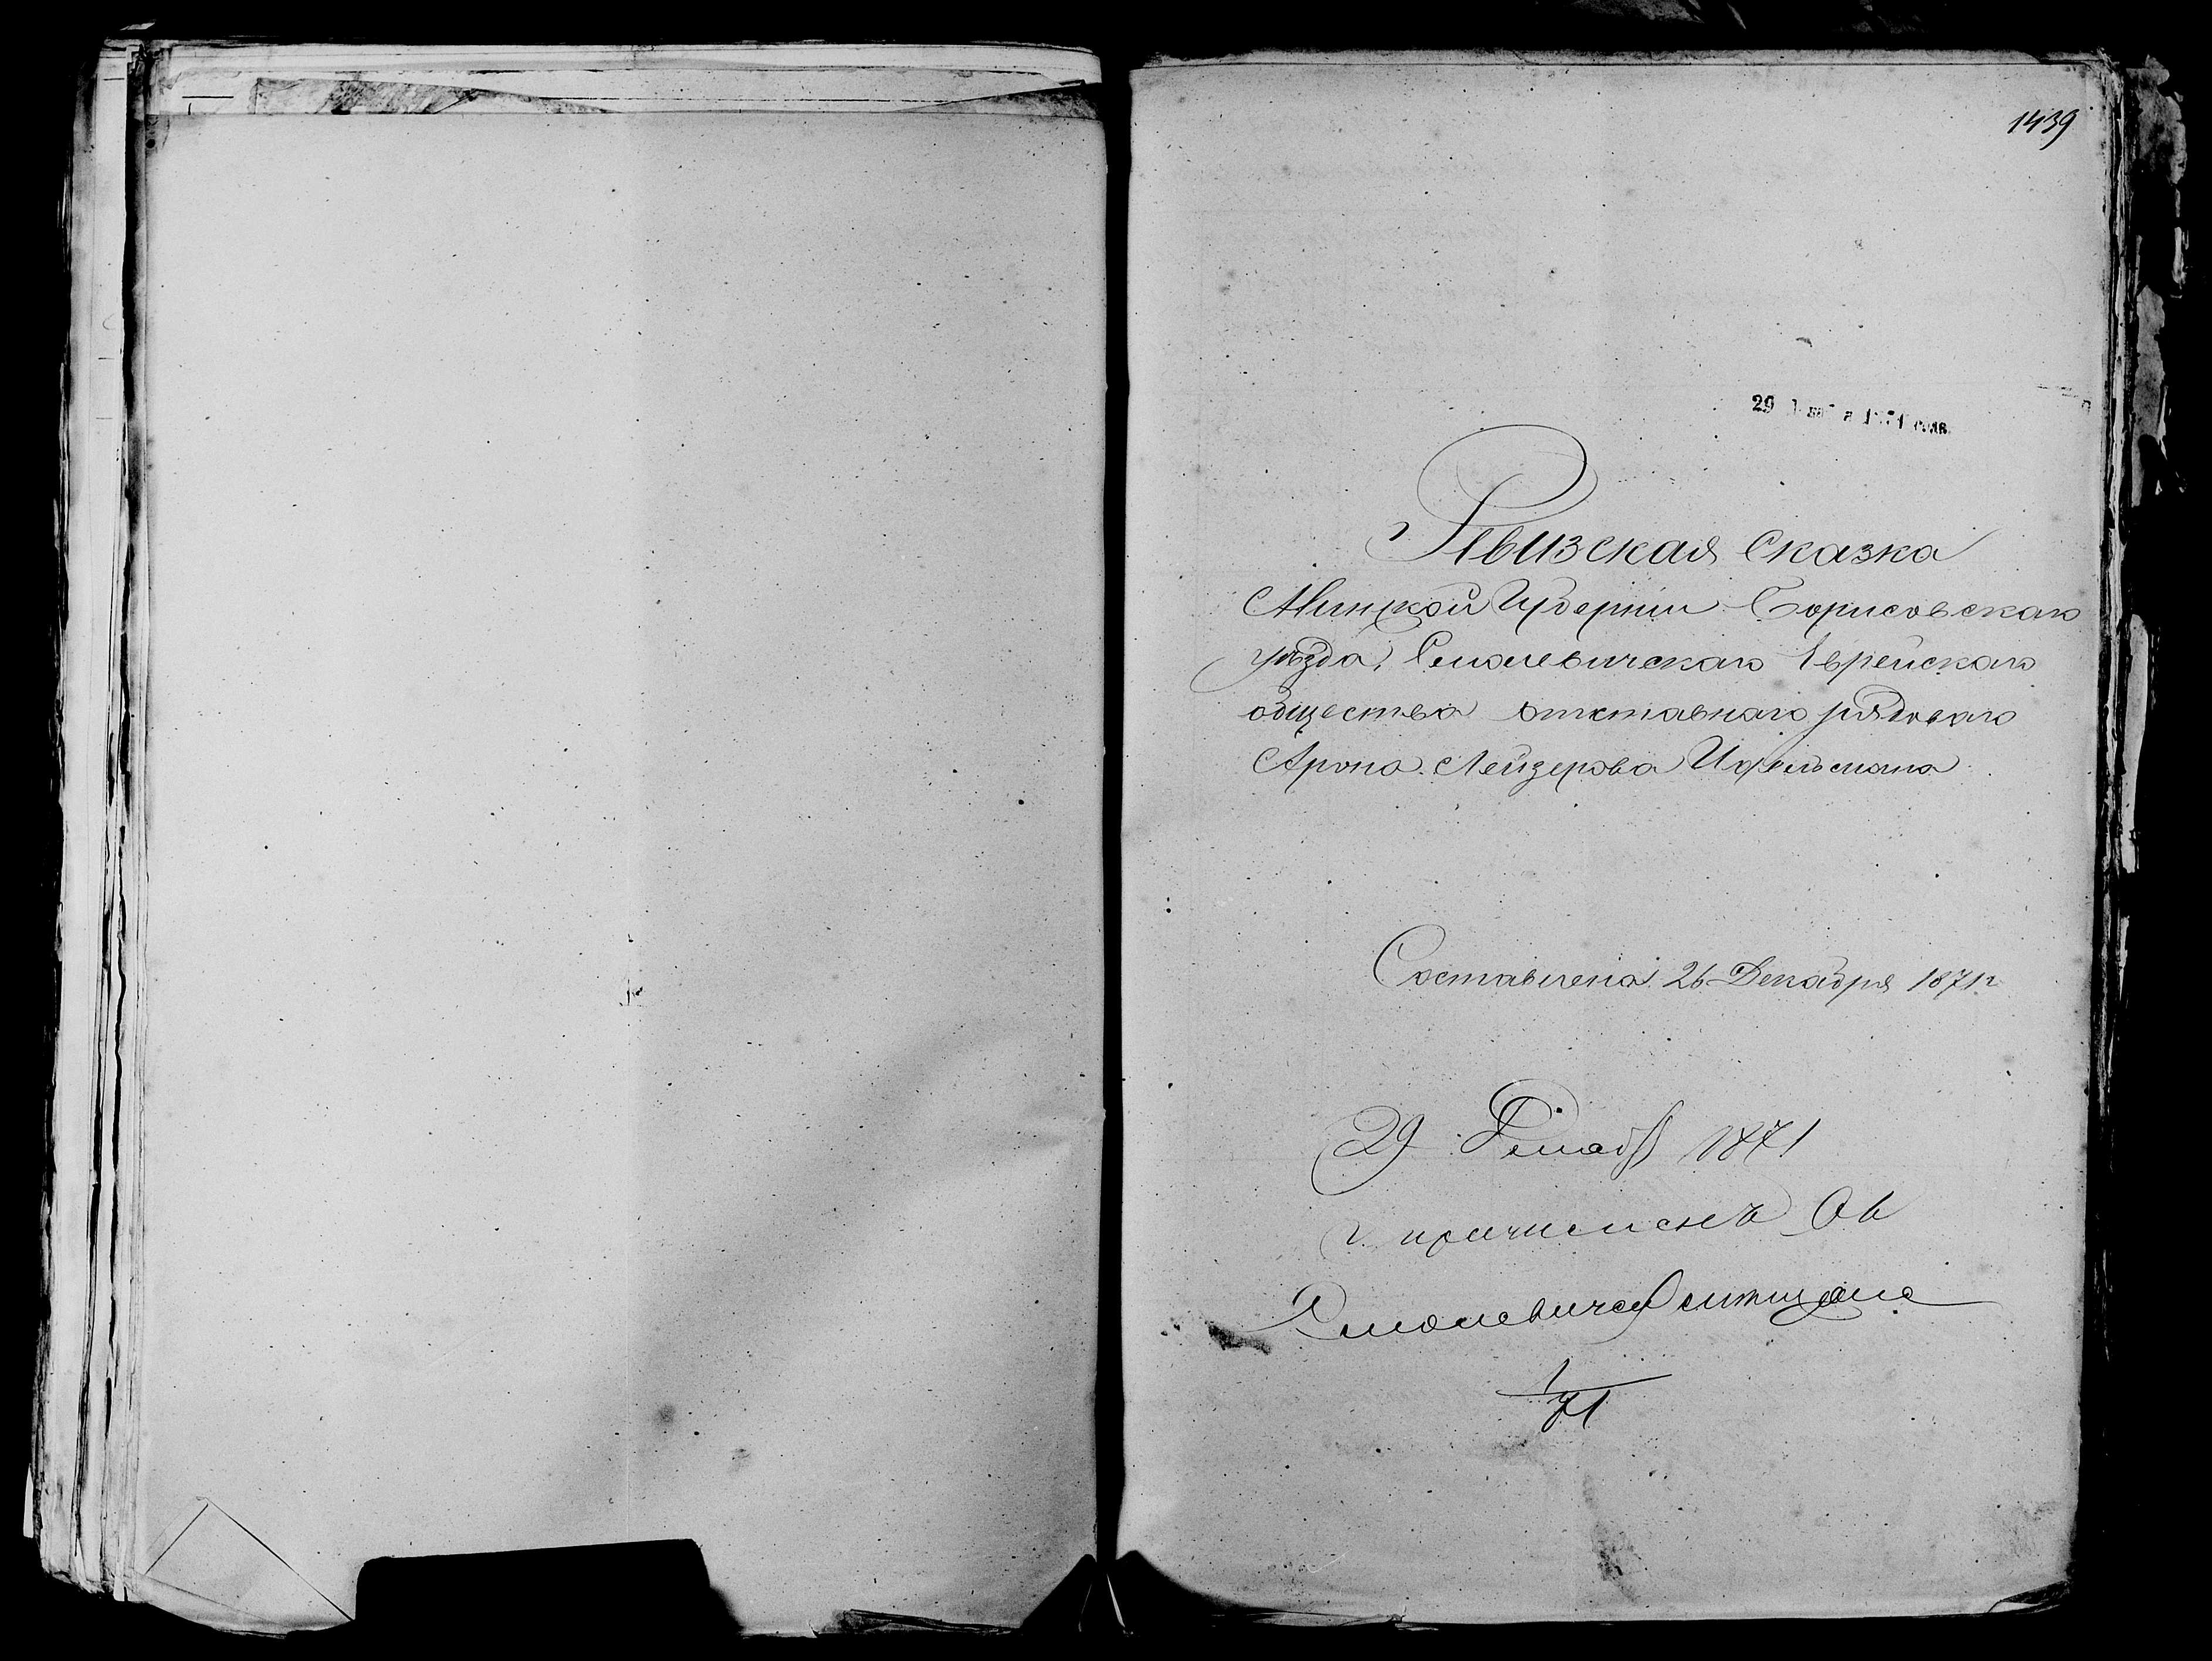 1439
29 1871 года.
Ревизская Сказка
Минской Губернии Борисовскаго
уѣзда, Смолевичскаго Еврейскаго
общества отставнаго рядоваго
Арона Лейзерова
Составлена 26 Декабря 1871 г
29 Декабр 1871
г. причисленъ въ
Смолевичск мѣщане
1/71